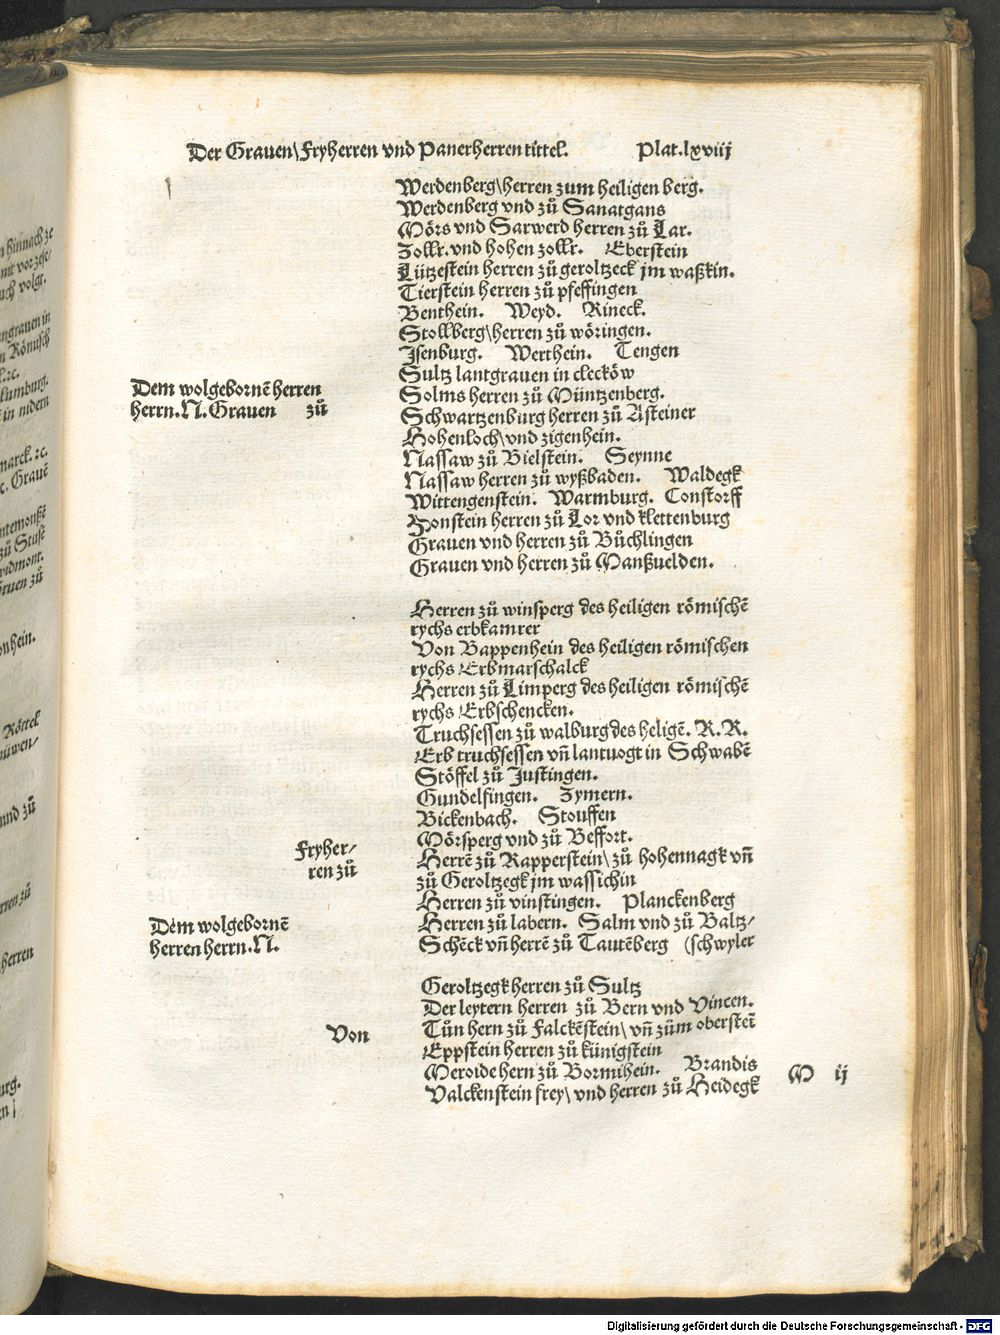 Der Grauen\ Fryherren vnd Panerherren tittel. Plat.lxviij
Werdenberg\ herren zum heiligen berg.
Werdenberg vnd zů Sanatgans
Mörs vnd Sarwerd herren zů Lar.
Zollr. vnd hohen zollr. Eberstein
Lützestein herren zů geroltzeck jm waßkin.
Tierstein herren zů pfeffingen
Benthein. Weyd. Rineck.
Stollberg\ herren zů wöringen.
Jsenburg. Werthein. Tengen
Sultz lantgrauen in cleckőw
Dem wolgebornē herren
herrn. N. Grauen zů
Solms herren zů Müntzenberg.
Schwartzenburg herren zů Asteiner
Hohenloch\ vnd zigenhein.
Nassaw zů Bielstein. Seynne
Nassaw herren zů wyßbaden. Waldegk
Wittengenstein. Warmburg. Constorff
Honstein herren zů Lor vnd klettenburg
Grauen vnd herren zů Bůchlingen
Grauen vnd herren zů Manßuelden.
Herren zů winsperg des heiligen römischē
rychs erbkamrer
Von Bappenhein des heiligen römischen
rychs Erbmarschalck
Herren zů Limperg des heiligen römischē
rychs Erbschencken.
Truchsessen zů walburg des heligē. R. R.
Erb truchsessen vn̄ lantuogt in Schwabē
Stöffel zů Justingen.
Gundelfingen. Zymern.
Bickenbach. Stouffen
Mörsperg vnd zů Beffort.
Fryher/
ren zů
Herrē zů Rapperstein\ zů hohennagk vn̄
zů Geroltzegk jm wassichin
Herren zů vinstingen. Planckenberg
Dem wolgebornē
herren herrn. N.
Herren zů labern. Salm vnd zů Baltz/
Schēck vn̄ herrē zů Tautēberg (schwyler
Geroltzegk herren zů Sultz
Der leytern herren zů Bern vnd Vincen.
Von
Tůn hern zů Falckēstein\ vn̄ zům obersteī
Eppstein herren zů künigstein
Meroide hern zů Bormihein. Brandis
Valckenstein frey\ vnd herren zů Heidegk
M ij
Digitalisierung gefördert durch die Deutsche Forschungsgemeinschaft - DFG